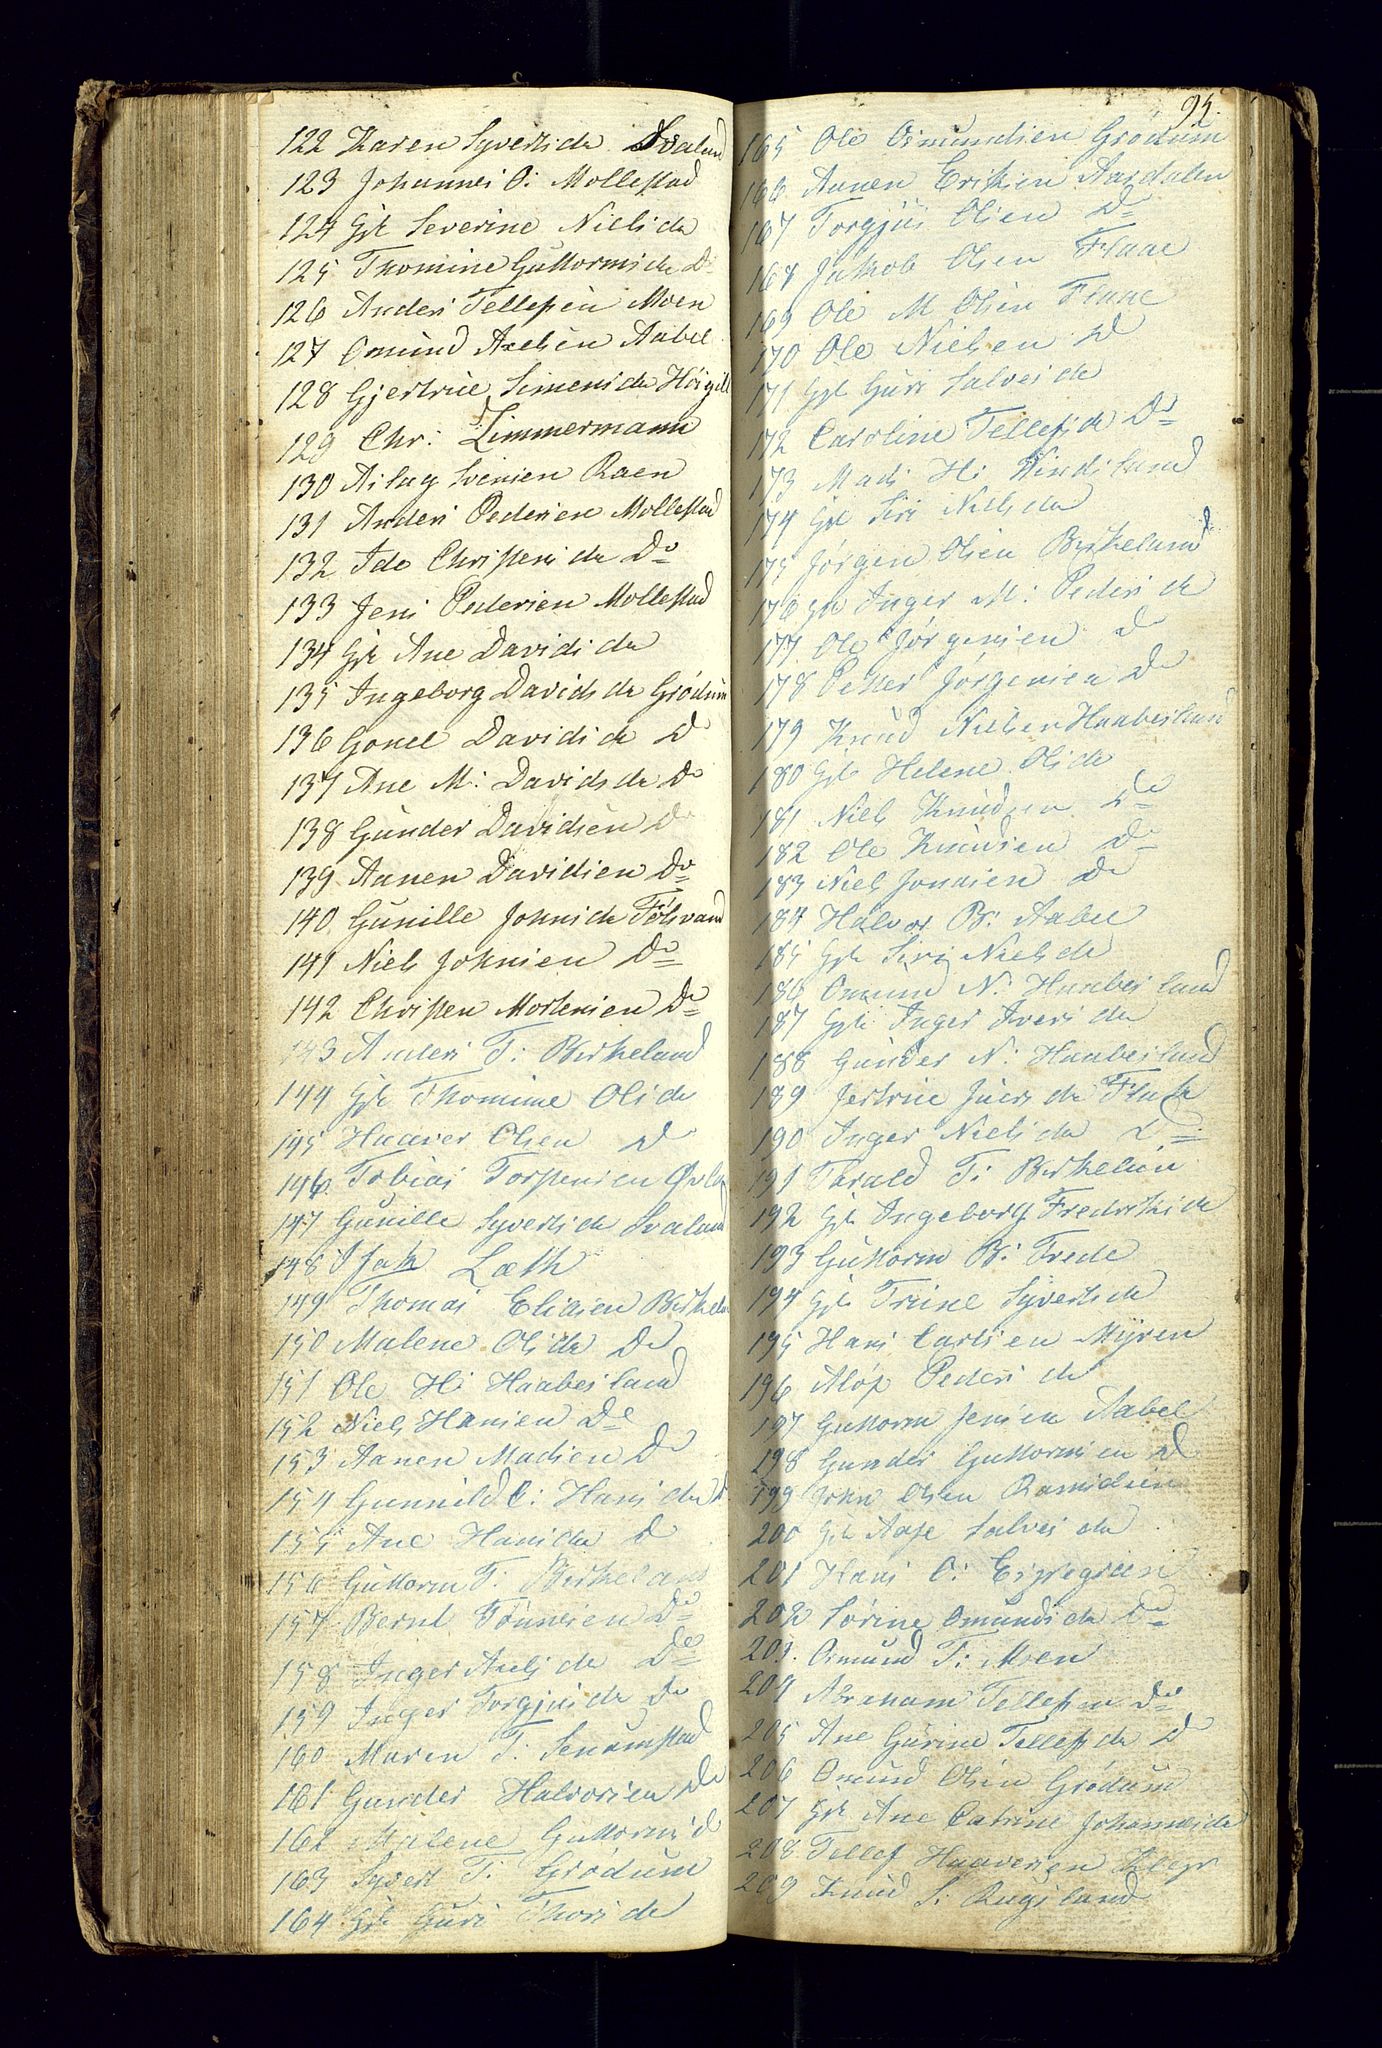 122 Karen Syverts da Svaland
123 Johannes O: Mollestad
124 Gjk Severine Niels da
125 Thomine Guttorms da Do
126 Anders Tellefsen Moen
127 Omund Axelsen Aabel
128 Gjertrue Simens da
129 Chr: Zimmermann
130 Aslag Svensen Raen
131 Anders Pedersen Mollestad
132 Ide Christens da Do
133 Jens Pedersen Mollestad
134 Gjk Ane Davids da
135 Ingeborg Davids da Grödum
136 Gonel Davids da Do
137 Ane M: Davids da Do
138 Gunder Davidsen Do
139 Aanen Davidsen Do
140 Gunille Johns da
141 Niels Johnsen Do
142 Christen Mortensen Do
143 Anders T: Birkeland
144 Gjk Thomine Ols da
145 Haaver Olsen Do
146 Tobias Torstensen
147 Gunille Syverts da Svaland
148 Isak Læth
149 Thomas Eliasen Birkelan
150 Malene Ols da Do
151 Ole H: Haabesland
152 Niels Hansen Do
153 Aanen Madsen Do
154 Gunnild C: Hans da D
155 Ane Hans da Do
156 Guttorm T: Birkeland
157 Bernt Tönnesen Do
158 Inger Axels da Do
159 Inger Torgjus da Do
160 Maren T: Senumstad
161 Gunder Halvorsen Do
162 Malene Guttorms d
163 Syvert T: Grödum
164 Gjk Guri Thors da
94.
165 Ole Osmundsen Grödum
166 Aanen Eriksen Aasdalen
167 Torgjus Olsen Do
168 Jakob Olsen Flaae
169 Ole M Olsen Flaae
170 Ole Nielsen Do
171 Gjk Guri Salves da
172 Caroline Tellefs da Do
173 Mads H: Vindsland
174 Gjk Siri Niels da
175 Jörgen Olsen Birkeland
176 Gjk Inger M: Peders da
177 Ole Jörgensen Do
178 Petter Jörgensen Do
179 Knud Nielsen Haabesland
180 Gjk Helene Ols da
181 Niels Knudsen Do
182 Ole Knudsen Do
183 Niels Jonasen Do
184 Halvor B: Aabel
185 Gjk Siri Niels da
186 Omund N: Haabesland
187 Gjk Inger Ivers da
188 Gunder N: Haabesland
189 Jertrue Juers da
190 Inger Niels da Do
191 Tarald T: Birkelan
192 Gjk Ingeborg Fredriks da
193 Guttorm B: Trede
194 Gjk Trine Syverts da
195 Hans Carlsen Myren
196 Peders da
197 Guttorm Jensen Aabel
198 Gunder Guttormsen Do
199 John Olsen
200 Gjk Aase Salves da
201 Hans O:
202 Sörine Omunds da Do
203. Osmund T: Moen
204 Abraham Tellefsen Do
205 Ane Gurine Tellefs da Do
206 Omund Olsen Grödum
207 Gjk Ane Catrine Johannes da
208 Tellef Haaversen
209 Knud S: Rugsland